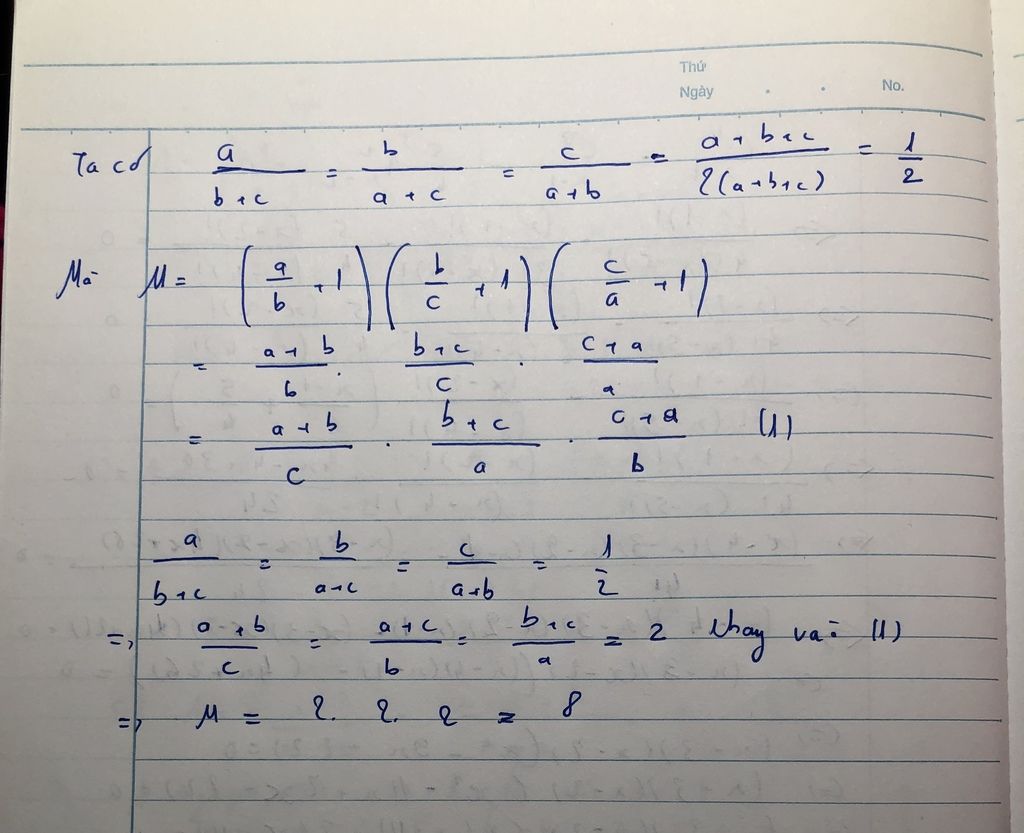 Thứ
Ngày . . No.
Ta có a/(b+c) = b/(a+c) = c/(a+b) = (a+b+c)/(2(a+b+c)) = 1/2
Mà M = (a/b + 1)(b/c + 1)(c/a + 1)
= (a+b)/b . (b+c)/c . (c+a)/a
= (a+b)/c . (b+c)/a . (c+a)/b (1)
a/(b+c) = b/(a+c) = c/(a+b) = 1/2
=> (a+b)/c = (a+c)/b = (b+c)/a = 2 thay và (1)
=> M = 2. 2. 2 = 8